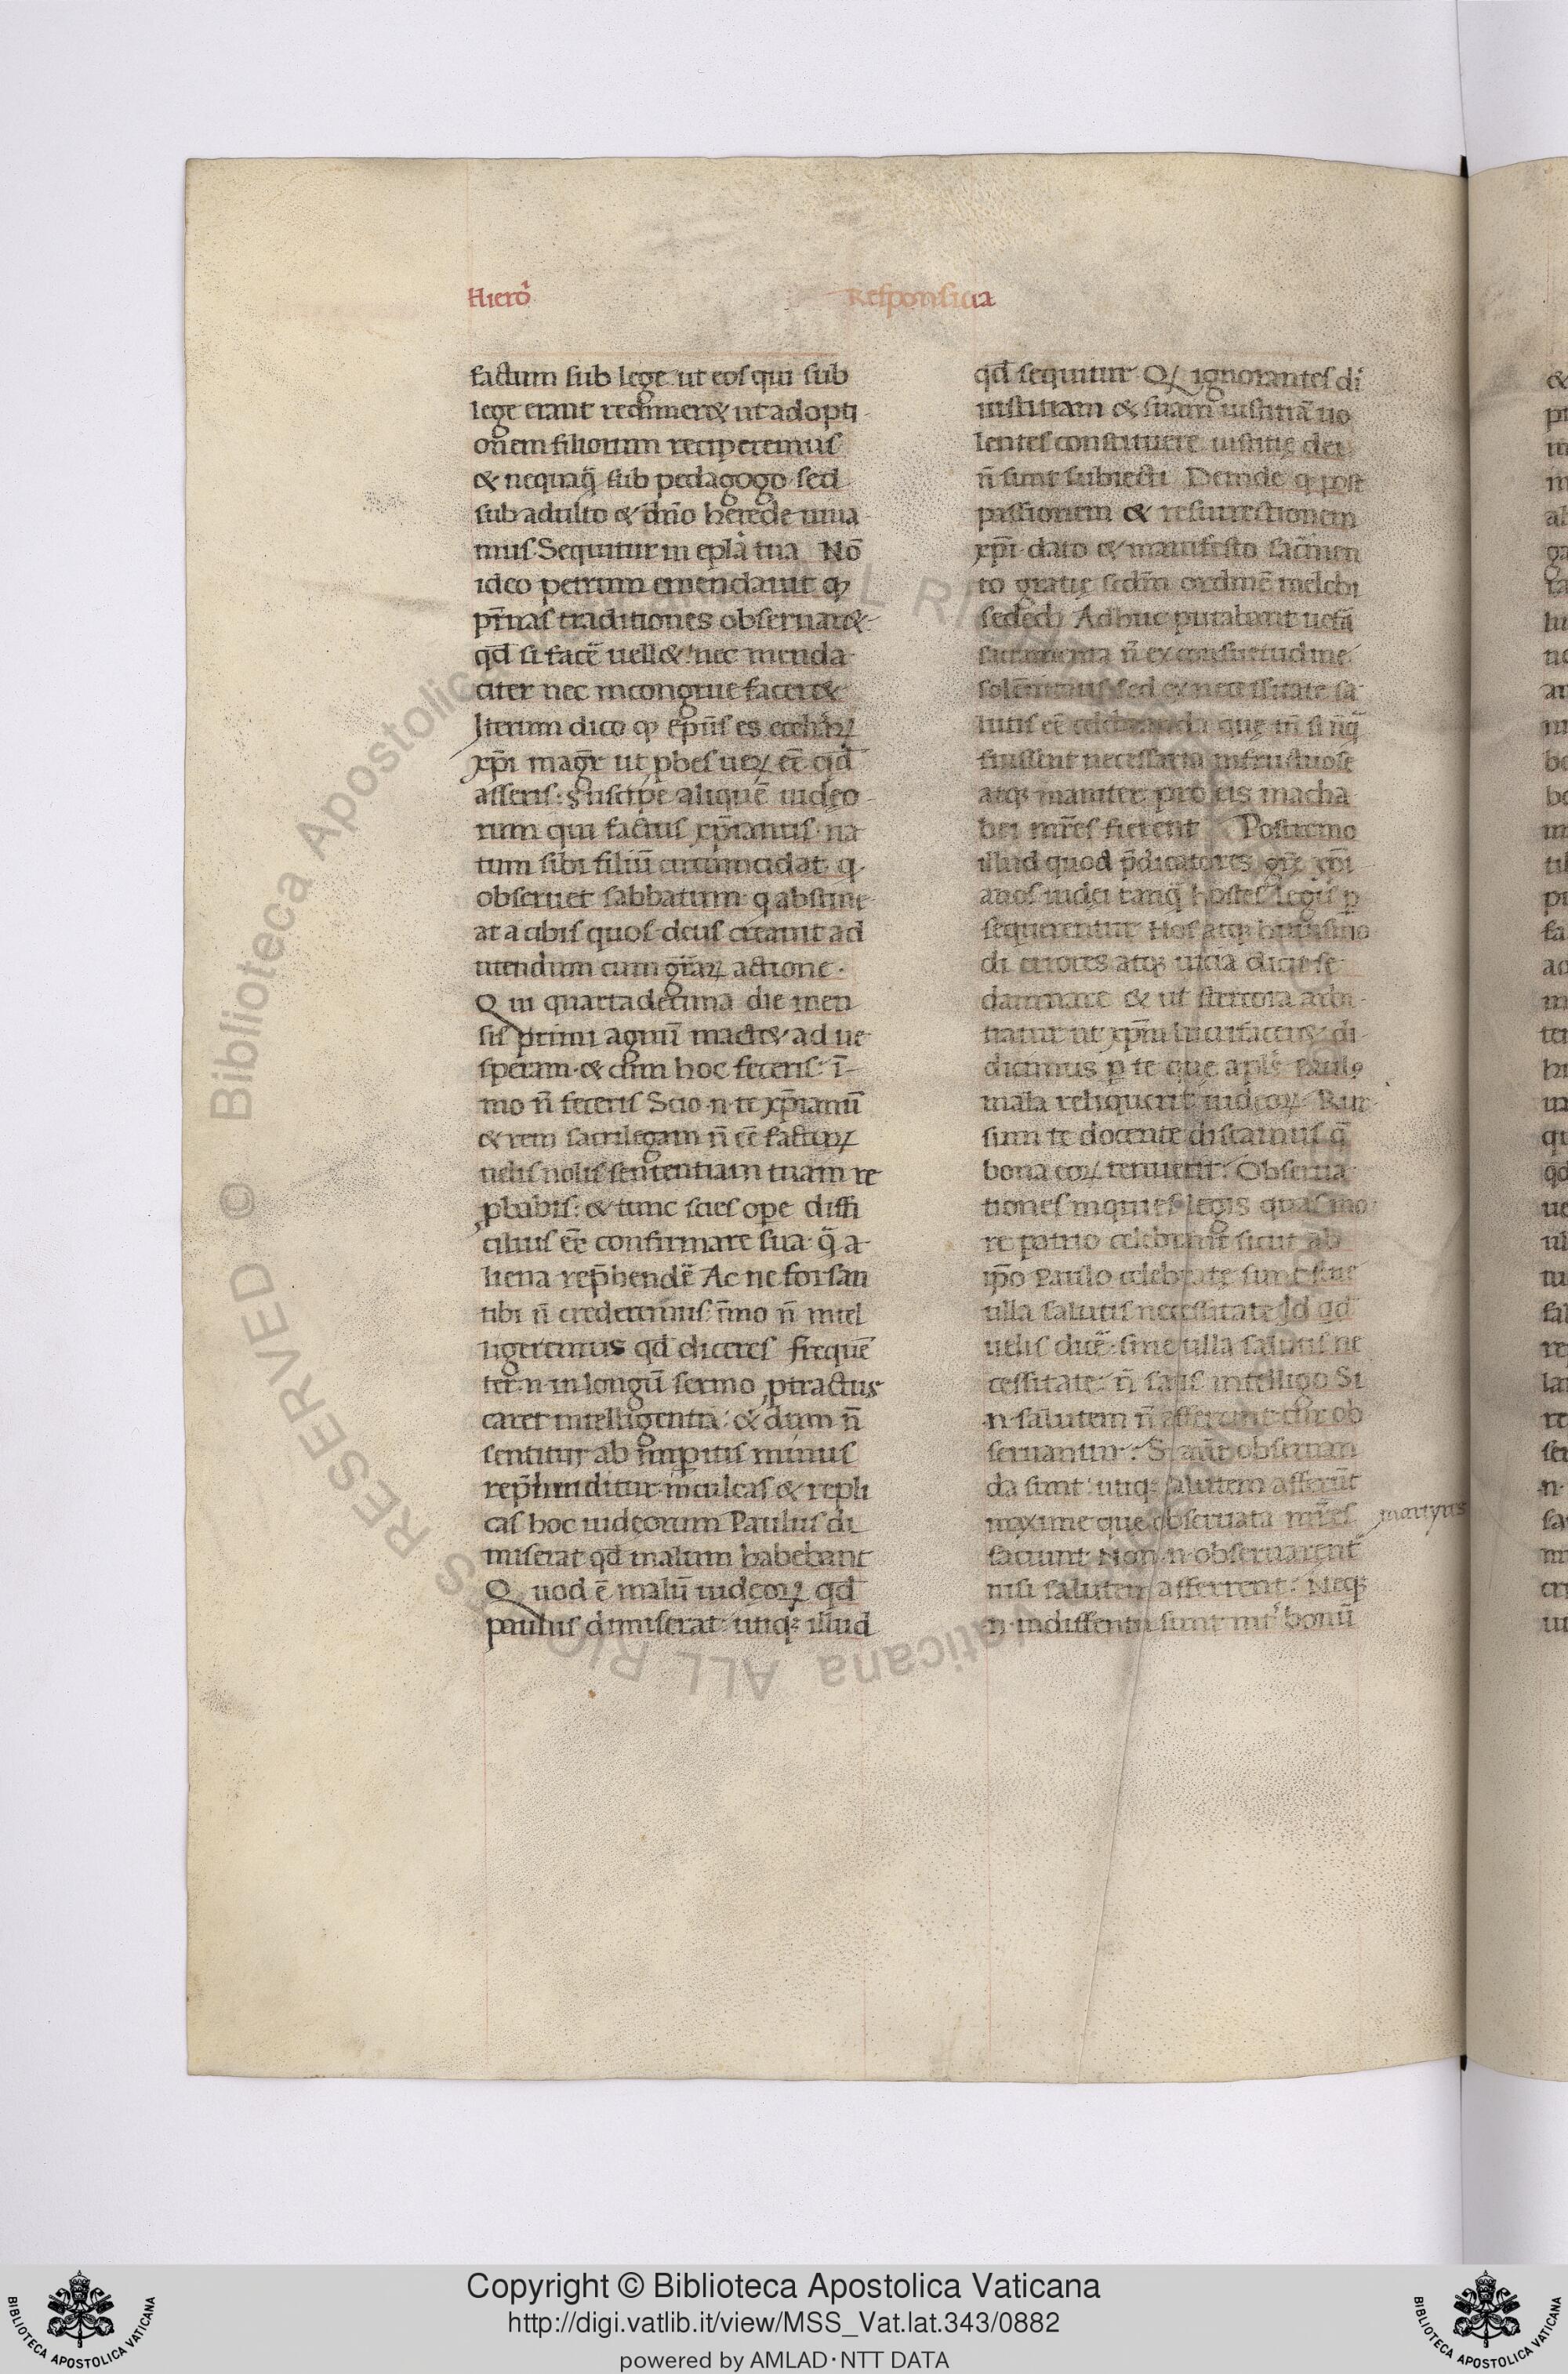 Hiero᷒
Responsiua
factum sub lege ut eos qui sub
lege erant redimer& ut adopti
onem filiorum reciperemus
& nequaq̄ sub pedagogo sed
sub adulto & dn̄o herede uiua
mus. Sequitur in epl̄a tua Nō
ideo petrum emendauit qꝫ
pr̄nas traditiones obseruar&
qd̄ si facē uell& nec menda
citer nec incongrue facer&
Iterum dico qꝫ ep̄us es ecclaꝝ
xp̄i magr̄ ut ꝓbes ueꝝ eē qd̄
asseris: suscipe aliquē iudeo
rum qui factus xp̄ianus na
tum sibi filiū circumcidat q
obseruet sabbatum q abstine
at a cibis quos deus creauit ad
utendum cum gr̄aꝝ actione.
Qui quartadecima die men
sis primi agnū mact& ad ue
speram & cum hoc feceris ī
mo n̄ feceris Scio n te xp̄ianū
& rem sacrilegam n̄ eē facturꝝ
uelis nolis sententiam tuam re
ꝓbabis: & tunc scies ope diffi
cilius eē confirmare sua q̄ a
liena rep̄hendē Ac ne forsan
tibi n̄ crederemus īmo n̄ intel
ligeremus qd̄ diceres frequē
ter n in longū sermo ꝓtractus
caret intelligentia & dum n̄
sentitur ab īmꝑitis minus
rep̄henditur inculcas & repli
cas hoc iudeorum Paulus di
miserat qd̄ malum habebant
Quod ē malū iudeoꝝ qd̄
paulus dimiserat utiqꝫ illud
qd̄ sequitur Qꝫ ignorantes di
iustitiam & suam iustitiā uo
lentes constituere iustitię dei
n̄ sunt subiecti Deinde q post
passionem & resurrectionem
xp̄i dato & manifesto sacr̄men
to gratię secdm̄ ordinē melchi
sedech Adhuc putabant uetā
sacramenta n̄ ex consuetudine
solēnitatis sed ex necessitate sa
lutis eē celebranda que tn̄ si nūq̄
fuissent necessaria infructuose
atqꝫ inaniter pro eis macha
bei mr̄es fierent Postremo
illud quod p̄dicatores gr̄ę xp̄i
anos iudei tanq̄ hostes legis ꝑ
sequerentur Hos atqꝫ huiusmo
di errores atqꝫ uicia dicit se
damnare & ut stercora arbi
tratur ut xp̄m lucrifacer& di
dicimus ꝑ te que apls̄ Paulꝰ
mala reliquerit iudeoꝝ Rur
sum te docente discamus q̄
bona eoꝝ tenuerit. Obserua
tiones inquies legis quas mo
re patrio celebrant sicut ab
ip̄o Paulo celebrate sunt sine
ulla salutis necessitate Id qd̄
uelis dicē sine ulla salutis ne
cessitate n̄ satis intelligo Si
n salutem n̄ afferunt cur ob
seruantur. Si aut̄ obseruan
da sunt utiqꝫ salutem afferūt
maxime que obseruata mr̄es
martyres
faciunt Non n obseruarent
nisi salutem afferrent. Neqꝫ
n indifferentia sunt int̄ bonū
Copyright © Biblioteca Apostolica Vaticana
http://digi.vatlib.it/view/MSS_Vat.lat.343/0882
powered by AMLAD·NTT DATA
BIBLIOTECA APOSTOLICA VATICANA
BIBLIOTECA APOSTOLICA VATICANA